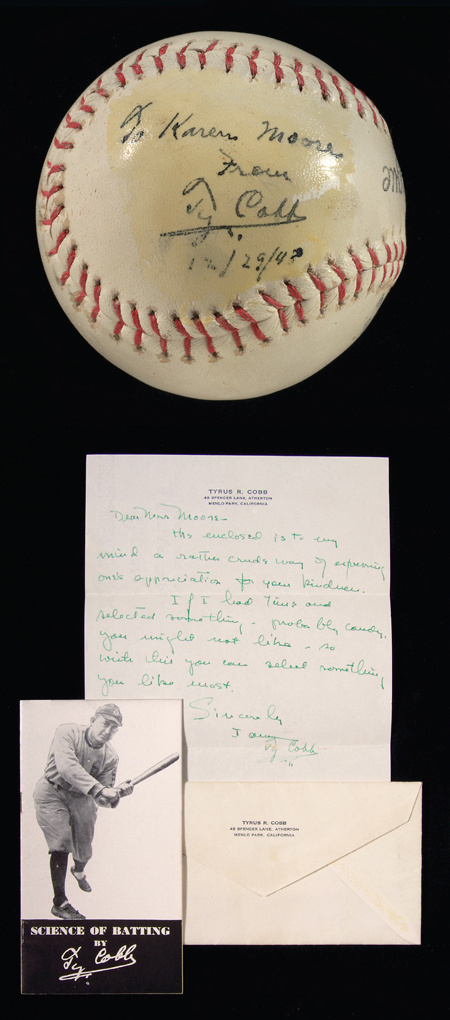 To Karen Moore
From
Ty Cobb
12/29/4
TYRUS R. COBB
48 SPENCER LANE, ATHERTON
MENLO PARK, CALIFORNIA
Dear Mrs Moore-
the enclosed is to my
mind a rather crude way of expressing
one's appreciation for your kindness.
If I had time and
selected something - probably candy,
you might not like - so
with this you can select something
you like most.
Sincerely
I am
Ty Cobb
SCIENCE OF BATTING
BY
Ty Cobb
TYRUS R. COBB
48 SPENCER LANE, ATHERTON
MENLO PARK, CALIFORNIA